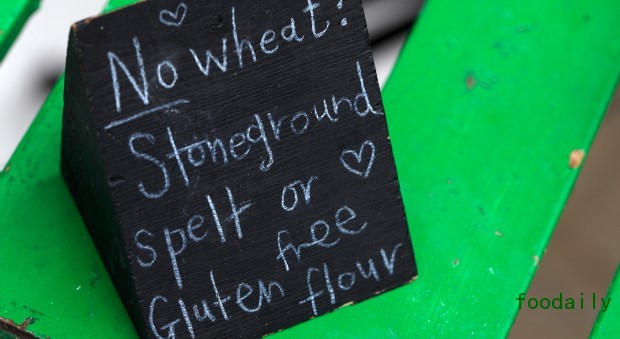 No wheat:
Stoneground
spelt or
free
Gluten flour
foodaily